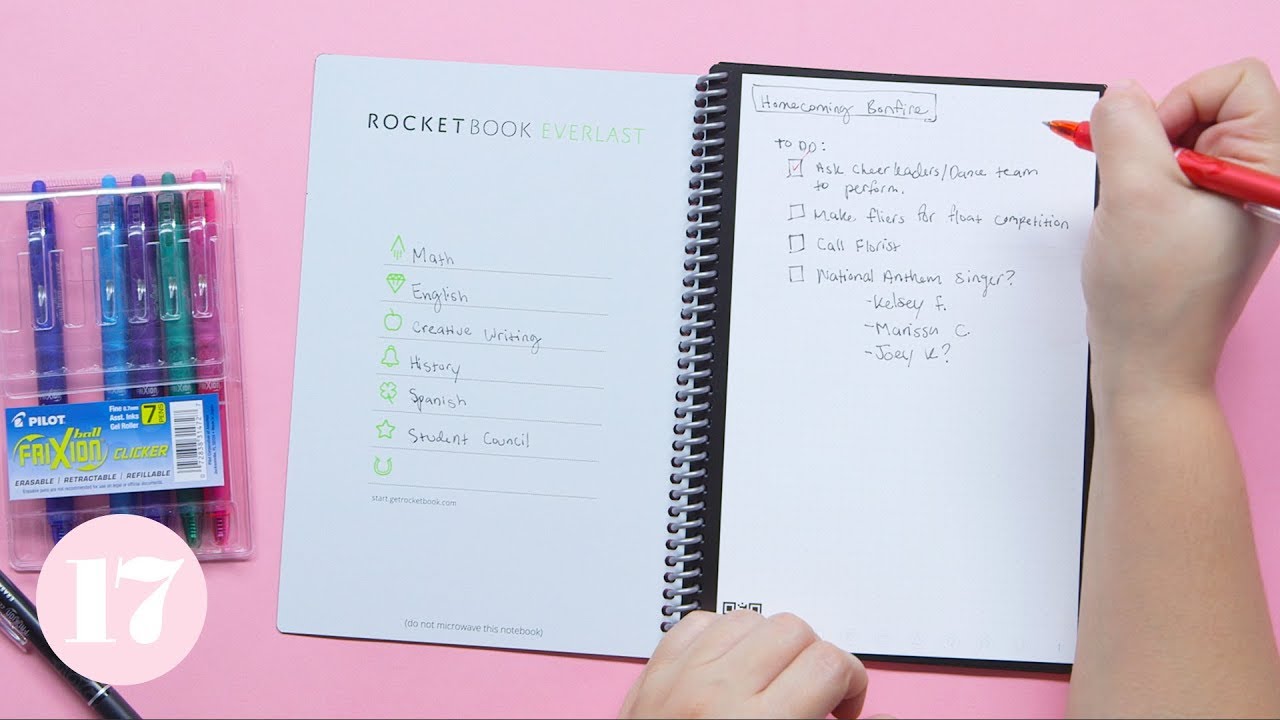 ROCKETBOOK EVERLAST
Math
English
Creative Writing
History
Spanish
Student Council
start.getrocketbook.com
(do not microwave this notebook)
Homecoming Bonfire
TO DO:
Ask Cheerleaders/Dance team
to perform.
Make fliers for float competition
Call Florist
National Anthem singer?
-Kelsey F.
-Marissa C.
-Joey K?
PILOT
Fine 0.7mm
Asst. Inks
Gel Roller
7 PENS
FRIXION ball CLICKER
ERASABLE | RETRACTABLE | REFILLABLE
17